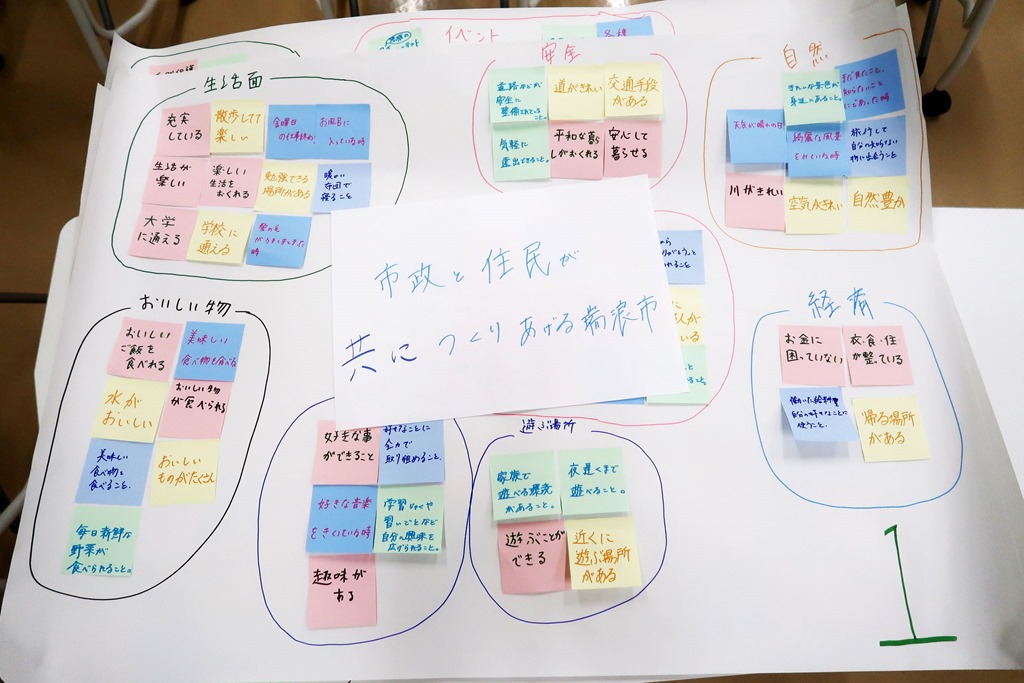 イベント
各種
生活面
充実
している
散歩してて
楽しい
金曜日
の仕事終わり
お風呂に
入っている時
生活が
楽しい
楽しい
生活を
おくれる
勉強できる
場所がある
暖かい
布団で
寝ること
大学
に通える
学校に
通える
時
安全
道路などが
安全に
整備されている
こと
道がきれい
交通手段
がある
気軽に
外出できること。
平和な暮ら
しがおくれる
安心して
暮らせる
自然
きれいな景色が
身近にあること。
まだ見たこと、
知らないこと
に出会った時
天気が晴れの日
綺麗な風景
をみている時
旅行して
自分の知らない
物に出会うこと
川がきれい
空気がきれい
自然豊か
市政と住民が
共につくりあげる瑞浪市
おいしい物
おいしい
ご飯を
食べれる
美味しい
食べ物を食べる
水が
おいしい
おいしい物
が食べられる
美味しい
食べ物を
食べること。
おいしい
ものがたくさん
毎日新鮮な
野菜が
食べられること。
好きな事
ができること
好きなことに
全力で
取り組めること。
好きな音楽
をきいている時
学習
習いごとなど
自分の興味を
広げられること。
趣味が
ある
遊ぶ場所
家族で
遊べる環境
があること。
夜遅くまで
遊べること。
遊ぶことが
できる
近くに
遊ぶ場所
がある
経済
お金に
困っていない
衣・食・住
が整っている
働いた給料を
自分の好きなことに
使うこと。
帰る場所
がある
1